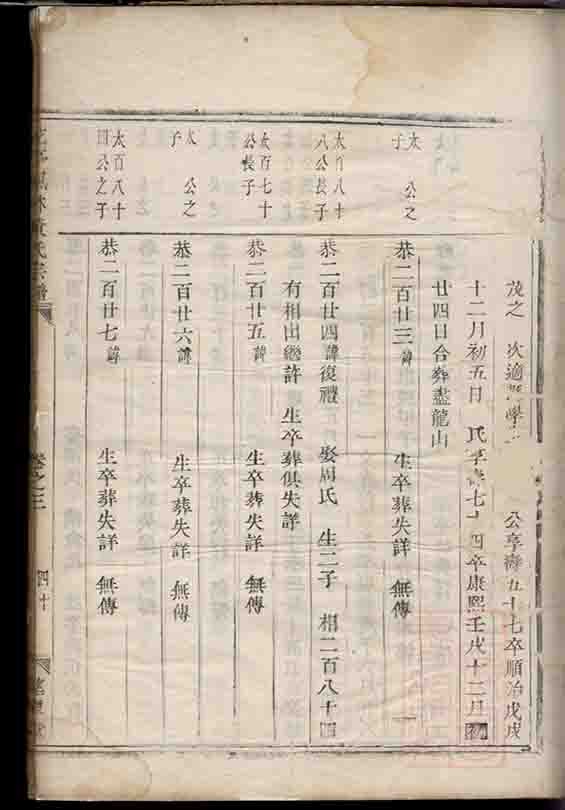 茂之 次適 學
公享壽五十七卒順治戊戌
十二月初五日 氏享壽七十四卒康熙壬戌十二月初
廿四日合葬盡龍山
太 公之
子
恭二百廿三諱 生卒葬失詳 無傳
太百八十
八公長子
恭二百廿四諱復禮 娶周氏 生二子 相二百八十四
有相出繼許 生卒葬俱失詳
太百七十
公長子
恭二百廿五諱 生卒葬失詳 無傳
太 公之
子
恭二百廿六諱 生卒葬失詳 無傳
太百八十
四公之子
恭二百廿七諱 生卒葬失詳 無傳
氏宗譜
卷之三
四十